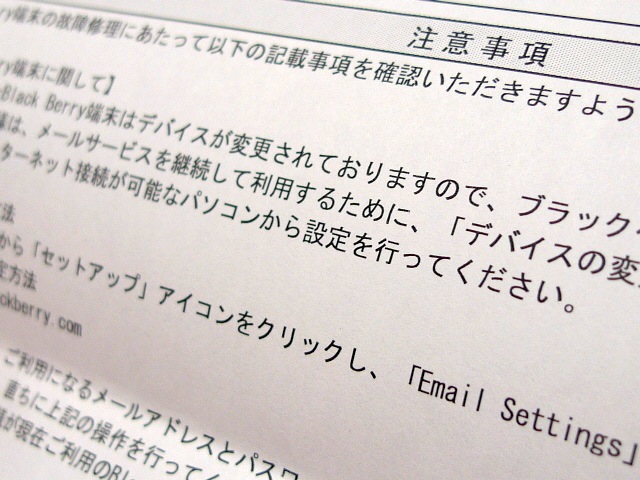 注意事項
ry端末の故障修理にあたって以下の記載事項を確認いただきますよう
ry端末に関して】
Black Berry端末はデバイスが変更されておりますので、ブラック
様は、メールサービスを継続して利用するために、「デバイスの変
ターネット接続が可能なパソコンから設定を行ってください。
方法
から「セットアップ」アイコンをクリックし、「Email Settings」
定方法
ackberry.com
ご利用になるメールアドレスとパスワ
直ちに上記の操作を行ってく
が現在ご利用のBl